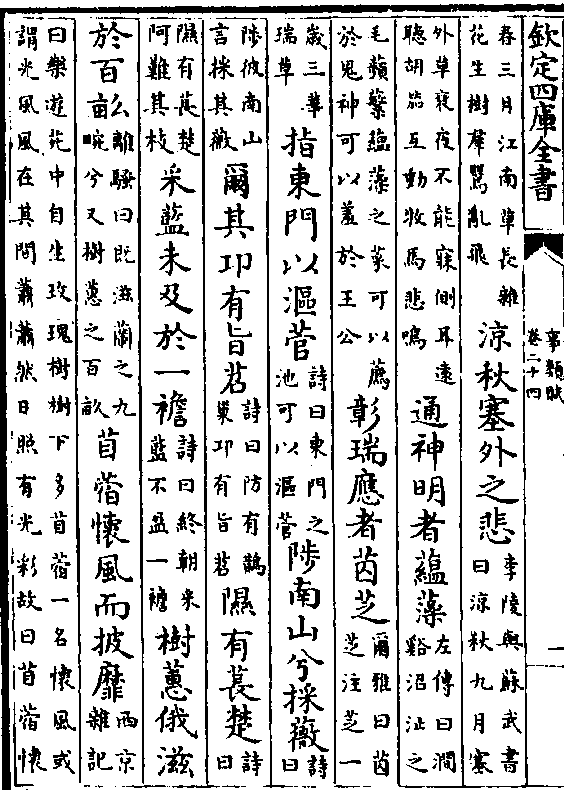 欽定四庫全書
事類賦
卷二十四
一
春三月江南草長雜
花生樹群鶯亂飛
涼秋塞外之悲
李陵與蘇武書
曰涼秋九月塞
外草衰夜不能寐側耳遠
聴胡笳互動牧馬悲鳴
通神明者蘊藻
左傳曰澗
谿沼沚之
毛蘋蘩蕰藻之菜可以薦
於鬼神可以羞於王公
彰瑞應者茵芝
爾雅曰茵
芝注芝一
嵗三華
瑞草
指東門以漚菅
詩曰東門之
池可以漚菅
陟南山兮採薇
詩
曰
陟彼南山
言採其薇
爾其卭有旨苕
詩曰防有鵲
巢卭有旨苕
隰有萇楚
詩
曰
隰有萇楚
阿難其枝
采藍未及於一襜
詩曰終朝采
藍不盈一襜
樹蕙俄滋
於百畝
離騷曰既滋蘭之九
畹兮又樹蕙之百畝
苜蓿懷風而披靡
西京
雜記
曰樂遊苑中自生玫瑰樹樹下多苜蓿一名懷風或
謂光風風在其間蕭蕭然日照有光彩故曰苜蓿懷